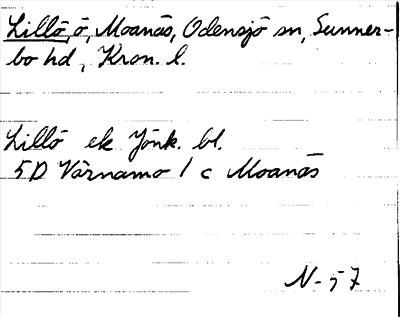 Lillö, ö, Moanäs, Odensjö sn, Sunner-
bo hd, Kron. l.
Lillö ek Jönk. bl.
5D Värnamo 1 c Moanäs
N-57